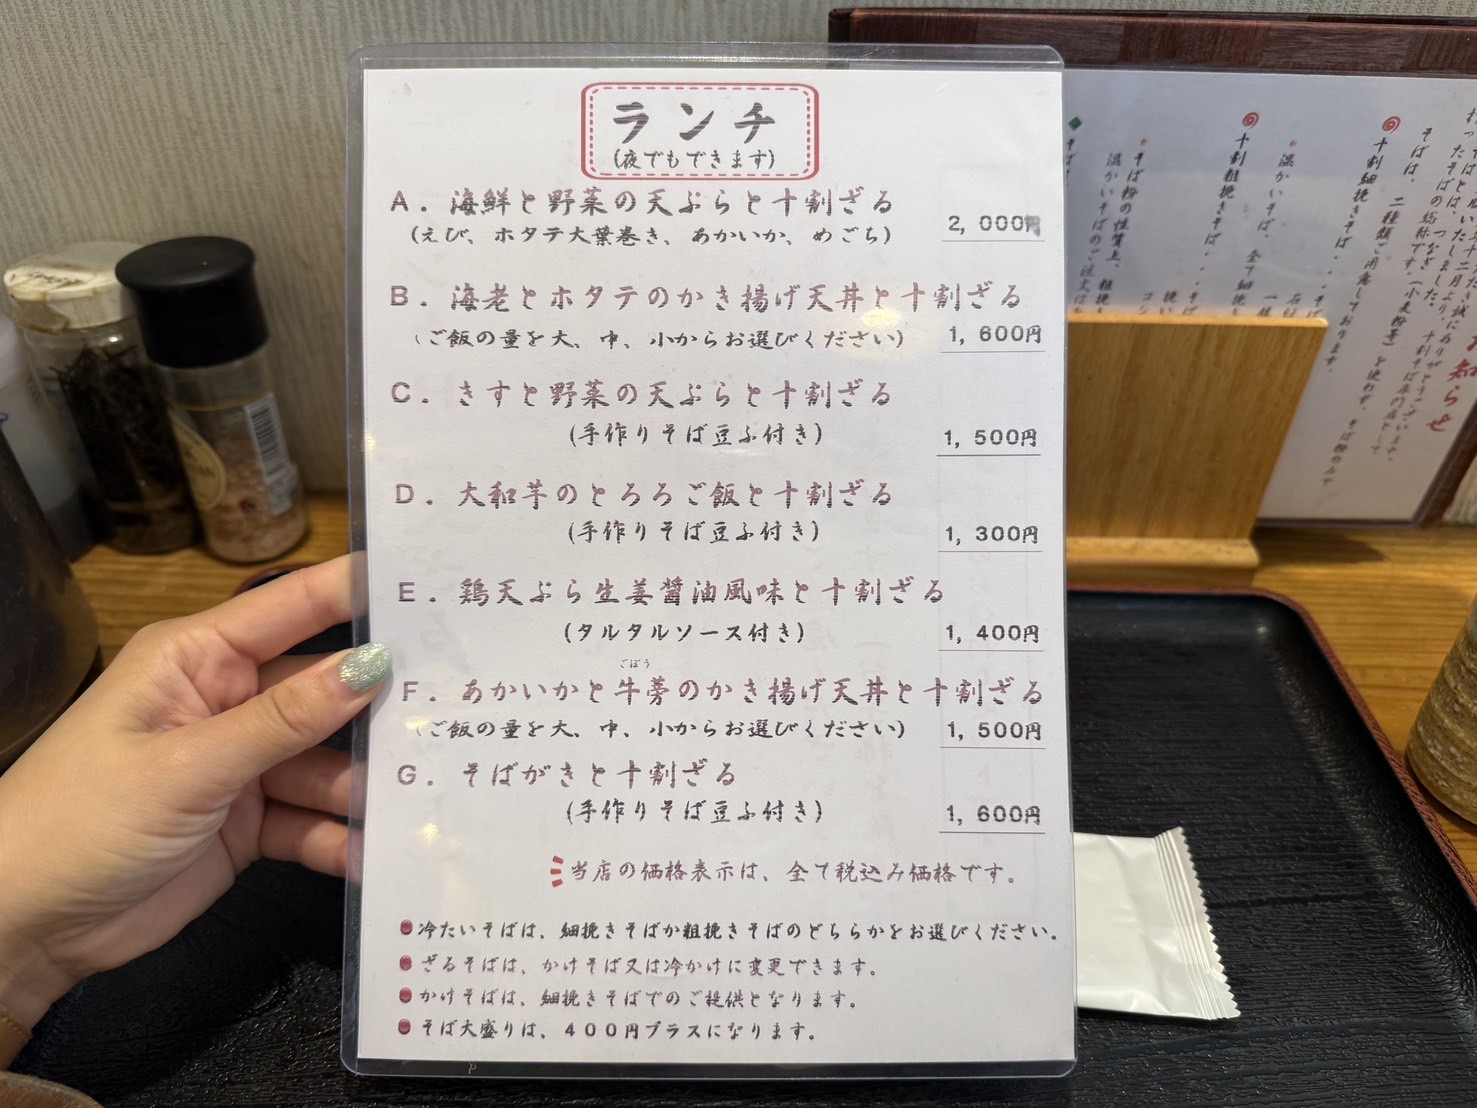 ランチ
(夜でもできます)
A．海鮮と野菜の天ぷらと十割ざる
(えび、ホタテ大葉巻き、あかいか、めごち)
2,000円
B．海老とホタテのかき揚げ天丼と十割ざる
(ご飯の量を大、中、小からお選びください)
1,600円
C．きすと野菜の天ぷらと十割ざる
(手作りそば豆ふ付き)
1,500円
D．大和芋のとろろご飯と十割ざる
(手作りそば豆ふ付き)
1,300円
E．鶏天ぷら生姜醤油風味と十割ざる
(タルタルソース付き)
1,400円
ごぼう
F．あかいかと牛蒡のかき揚げ天丼と十割ざる
(ご飯の量を大、中、小からお選びください)
1,500円
G．そばがきと十割ざる
(手作りそば豆ふ付き)
1,600円
当店の価格表示は、全て税込み価格です。
冷たいそばは、細挽きそばか粗挽きそばのどちらかをお選びください。
ざるそばは、かけそば又は冷かけに変更できます。
かけそばは、細挽きそばでのご提供となります。
そば大盛りは、４００円プラスになります。
お知らせ
そばは、二種類ご用意しております。
十割細挽きそば
十割粗挽きそば
温かいそば、全て細挽
そば粉の性質上、粗挽
温かいそばのご注文は